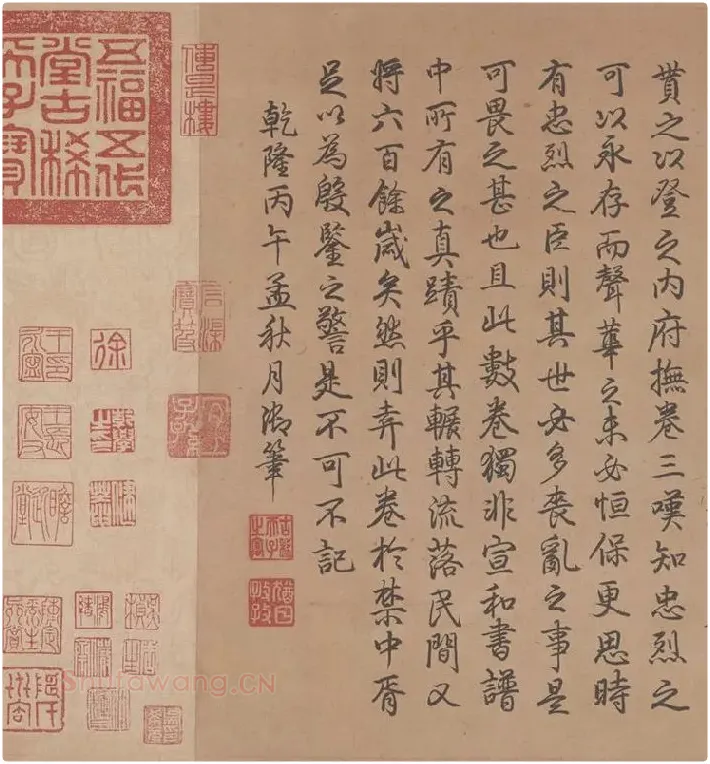 貰之以登之内府撫卷三嘆知忠烈之
可以永存而聲華之未必恒保更思時
有忠烈之臣則其世必多喪亂之事是
可畏之甚也且此數卷獨非宣和書譜
中所有之真蹟乎其輾轉流落民間又
將六百餘歲矣然則弆此卷於禁中胥
足以為殷鑒之警是不可不記
乾隆丙午孟秋月御筆
古稀天子之寶
猶日孜孜
傳是樓
五福五代
堂古稀
天子寶
徐
Shufawang.CN